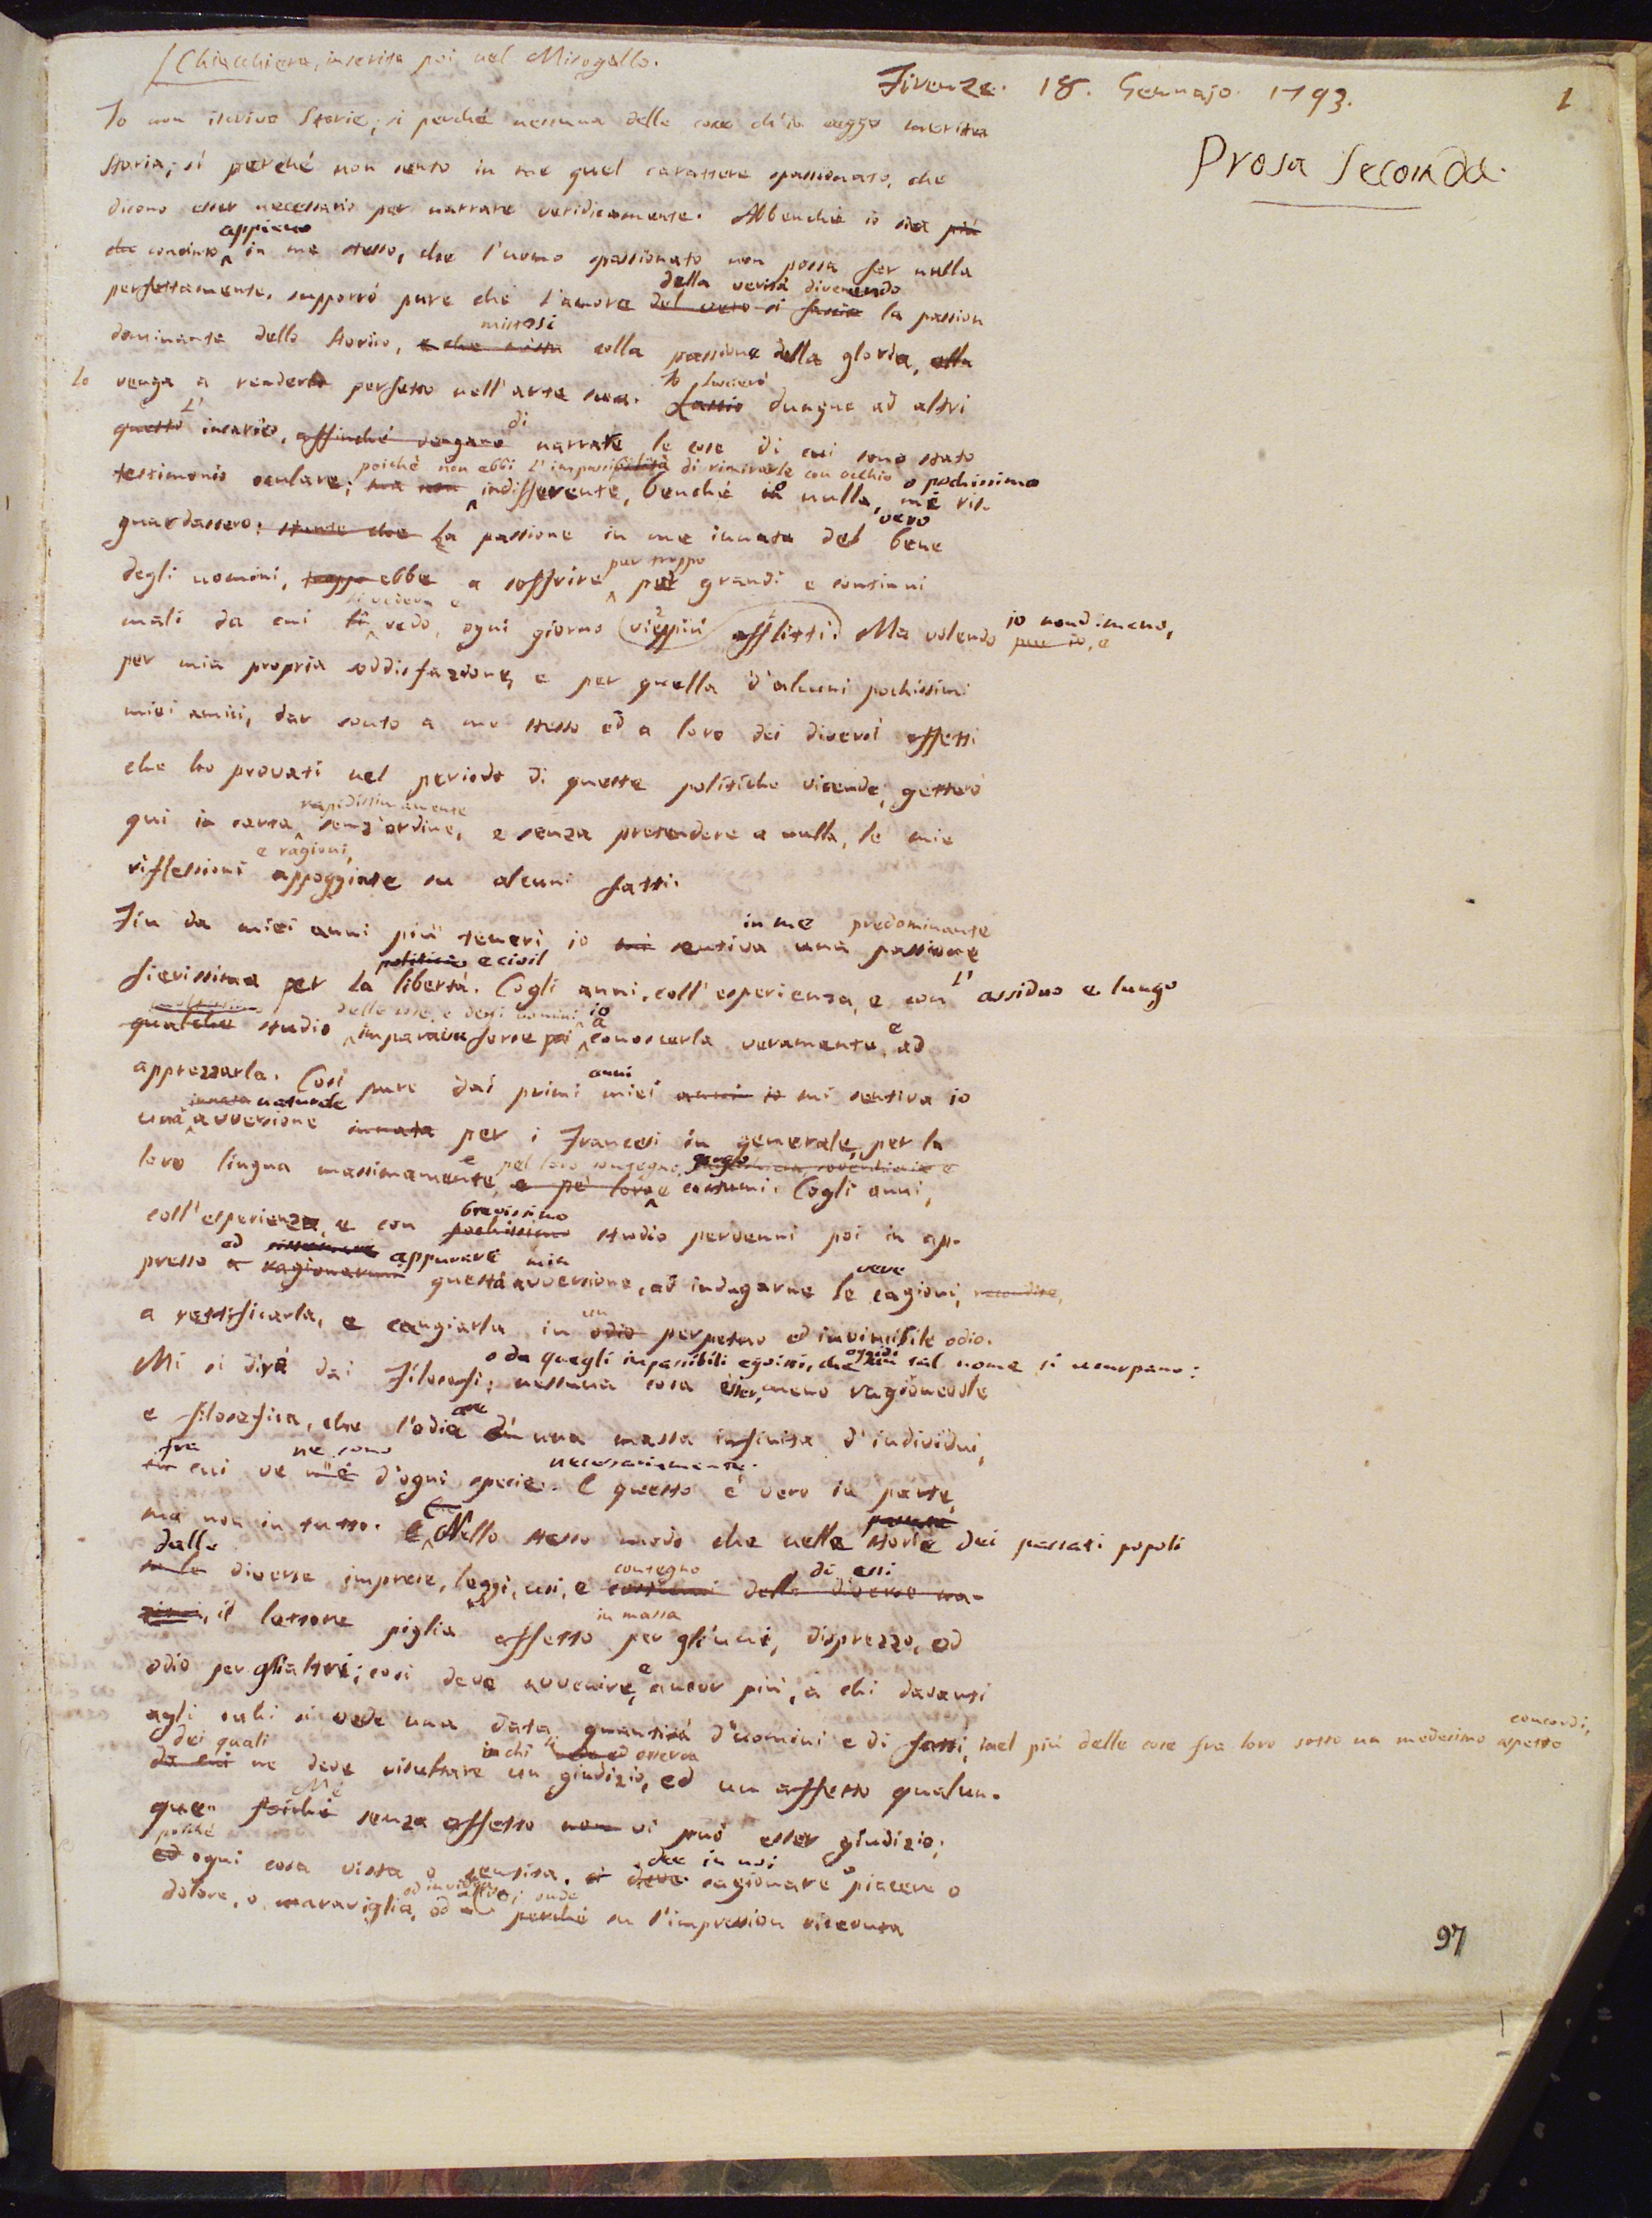 Chiacchiera, inserita poi nel Misogallo.
Firenze. 18. Gennajo. 1793.
1
Prosa Seconda.
Io non iscrivo Storie; sì perché nessuna delle cose ch'io veggo merita
storia; sì perché non sento in me quel carattere spassionato, che
dicono esser necessario per narrare veridicamente. Abbenché io sia più
appieno
che convinto in me stesso, che l'uomo spassionato non possa far nulla
della verità divenendo
perfettamente. supporró pure che l'amore del vero si faccia la passion
mistosi
dominante dello storico, e che mista colla passione della gloria, ella
lo venga a renderlo perfetto nell'arte sua. Io lascierò Lascio dunque ad altri
L' di
questo incarico, affinché vengano narrate le cose di cui sono stato
poiché non ebbi l'impassibilità di rimirarle con occhio o pochissimo
testimonio oculare; ma non indifferente, benché in nulla, me ris-
vero
guardassero: stante che La passione in me innata del bene
per troppo
degli uomini, troppo ebbe a soffrire pei grandi e continui
li vedeva e
mali da cui li vedo, ogni giorno vieppiù afflitti. Ma volendo io nondimeno, pur io, e
per mia propria soddisfazione, e per quella d'alcuni pochissimi
miei amici, dar conto a me stesso ed a loro dei diversi affetti
che ho provati nel periodo di queste politiche vicende, getterò
rapidissimamente
qui in carta senz'ordine, e senza pretendere a nulla, le mie
e ragioni,
riflessioni appoggiate su alcuni fatti.
in me predominante
Fin da miei anni più teneri, io mi sentiva una passione
politica e civil
fierissima per la libertà. Cogli anni, coll'esperienza, e con l' assiduo e lungo
delle cose, e degli uomini, io
qualche studio imparava forse poi a conoscerla veramente, e ad
anni
apprezzarla. Così pure dai primi miei anni io mi sentiva io
innata naturale
una avversione innata per i Francesi in generale, per la
e pel loro contegno, gergo
loro lingua massimamente, e pe' loro e costumi. Cogli anni,
brevissimo
coll'esperienza, e con pochissimo studio pervenni poi in ap-
ad appurare mia vere
presso a ragionarmi questa avversione, ad indagarne le cagioni, recondite,
un
a rettificarla, e cangiarla in odio perpetuo ed invincibile odio.
o da quegli impassibili egoisti, che oggidì un tal nome si usurpano:
Mi si dirà dai Filosofi; nessuna cosa esser, meno ragionevole
are
e filosofica, che l'odio di una massa infinita d'individui,
fra ne sono necessariamente.
in cui ve n'è d'ogni specie. E questo è vero in parte,
ma non in tutto. E Nello stesso modo che nelle storie dei passati popoli
dalle contegno di essi
su le diverse imprese, leggi, usi, e costumi delle diverse na-
in massa
zioni, il lettore piglia affetto per gli uni, disprezzo, ed
odio per gli altri; così deve avvenire, e ancor più, a chi davanti
concordi,
agli occhi si vede una data quantità d'uomini e di fatti, nel più delle cose fra loro sotto un medesimo aspetto
dei quali in chi li vede ed osserva
da cui ne deve risultare un giudizio, ed un affetto qualun-
Né
que. Poiché senza affetto non vi può esser giudizio;
poiché dee in noi
ed ogni cosa vista o sentita, si deve cagionare o piacere o
od invidia, od altro; onde
dolore, o maraviglia, od perché su l'impression ricevuta
97